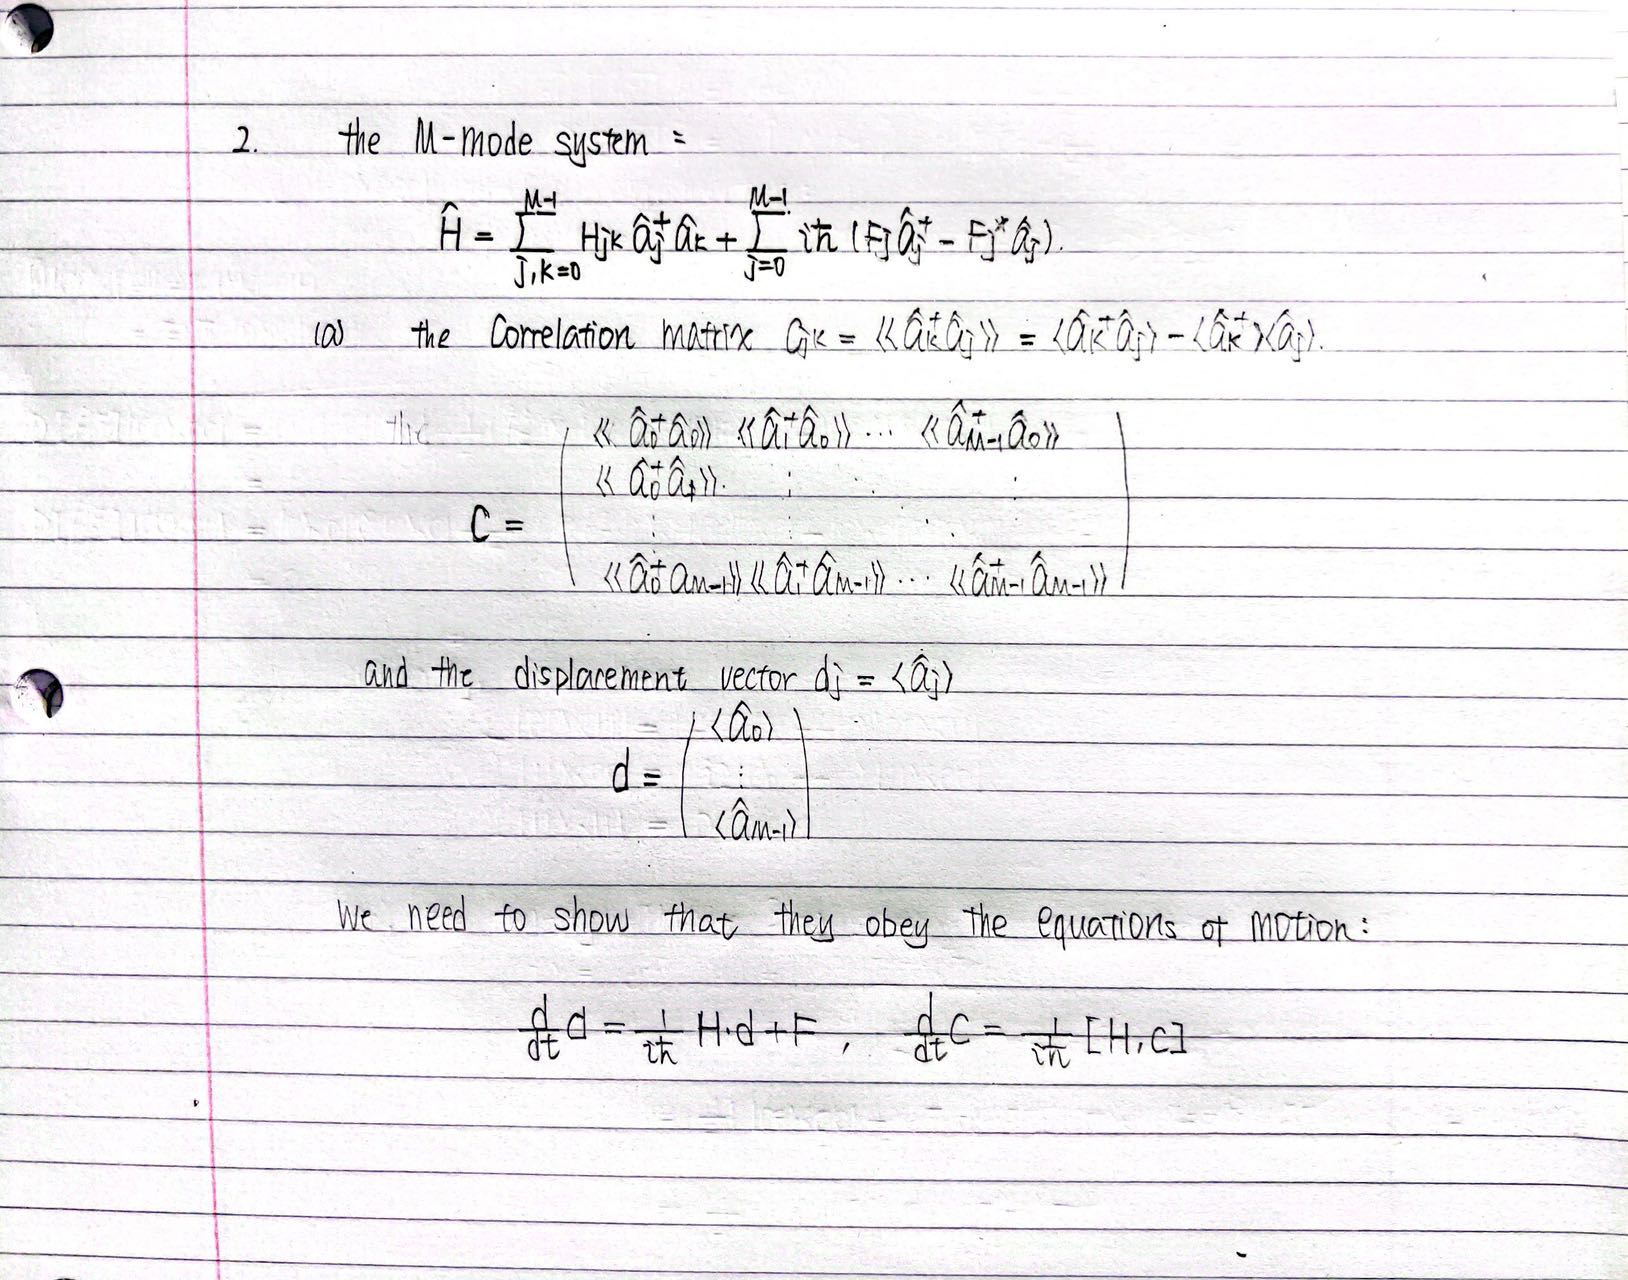 2. the M-mode system =
Ĥ = ∑_{j,k=0}^{M-1} Hjk âj⁺ âk + ∑_{j=0}^{M-1} iħ (Fj âj⁺ - Fj* âj).
(a) the Correlation matrix Cjk = ⟪âk⁺âj⟫ = ⟨âk⁺âj⟩ - ⟨âk⁺⟩⟨âj⟩.
the
⟪â0⁺â0⟫ ⟪â1⁺â0⟫ ... ⟪âM-1⁺â0⟫
⟪â0⁺â1⟫. ⋮ ⋱ ⋮
C =
⟪â0⁺aM-1⟫ ⟪â1⁺âM-1⟫ ... ⟪âM-1⁺âM-1⟫
and the displacement vector dj = ⟨âj⟩
⟨â0⟩
d = ⋮
⟨âM-1⟩
We need to show that they obey the equations of motion:
d/dt d = 1/iħ H·d + F , d/dt C = 1/iħ [H, C]